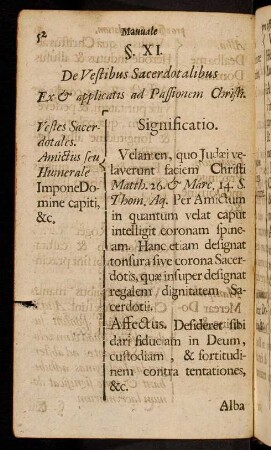 52 Manuale
§. XI.
De Vestibus Sacerdotalibus
Ex & applicatis ad Passionem Christi.
Vestes Sacer-
dotales.
Amictus seu
Humerale
Impone Do-
mine capiti,
&c.
Significatio.
Velamen, quo Judæi ve-
laverunt faciem Christi
Matth. 26. & Marc. 14. S.
Thom. Aq. Per Amictum
in quantum velat caput
intelligit coronam spine-
am. Hanc etiam designat
tonsura sive corona Sacer-
dotis, quæ insuper designat
regalem dignitatem Sa-
cerdotii.
Affectus. Desideret sibi
dari fiduciam in Deum,
custodiam, & fortitudi-
nem contra tentationes,
&c.
Alba